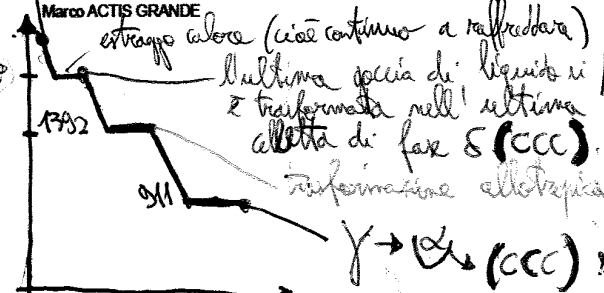 Marco ACTIS GRANDE
estraggo calore (cioè continuo a raffreddare)
l'ultima goccia di liquido si
è trasformata nell'ultima
celletta di fase δ (CCC).
1392
trasformazione allotropica
911
γ → α → (CCC)